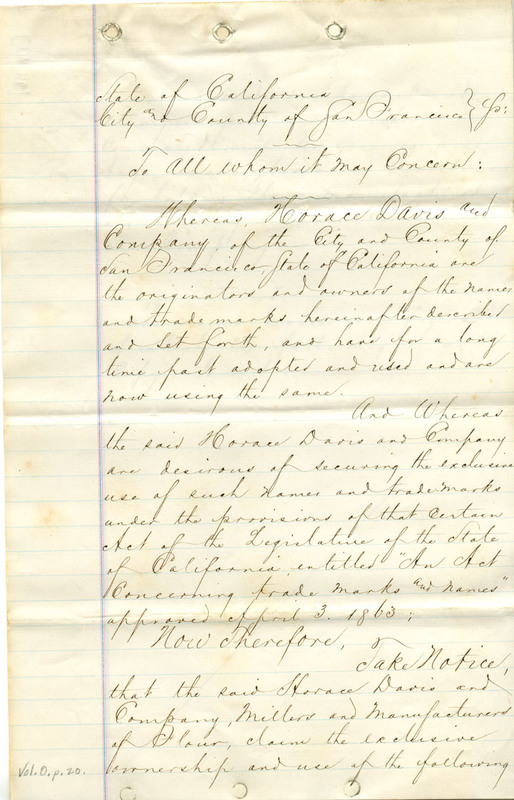 State of California
City and County of San Francisco } ss:
To All whom it may Concern:
Whereas, Horace Davis and
Company, of the City and County of
San Francisco, State of California are
the originators and owners of the names
and trade marks hereinafter described
and set forth, and have for a long
time past adopted and used and are
now using the same.
And Whereas
the said Horace Davis and Company
are desirous of securing the exclusive
use of such names and trade marks
under the provisions of that certain
Act of the Legislature of the State
of California, entitled "An Act
Concerning trade marks and names"
approved April 3. 1863;
Now Therefore,
Take Notice,
that the said Horace Davis and
Company, Millers and Manufacturers
of Flour, claim the exclusive
ownership and use of the following
Vol. D. p. 20.